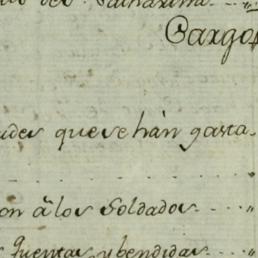 Cargo
que se han gasta
on á los Soldados
quentas, y bendidas